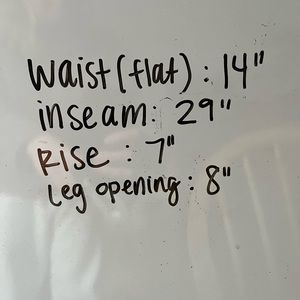 Waist (flat) : 14"
inseam: 29"
Rise : 7"
Leg opening : 8"